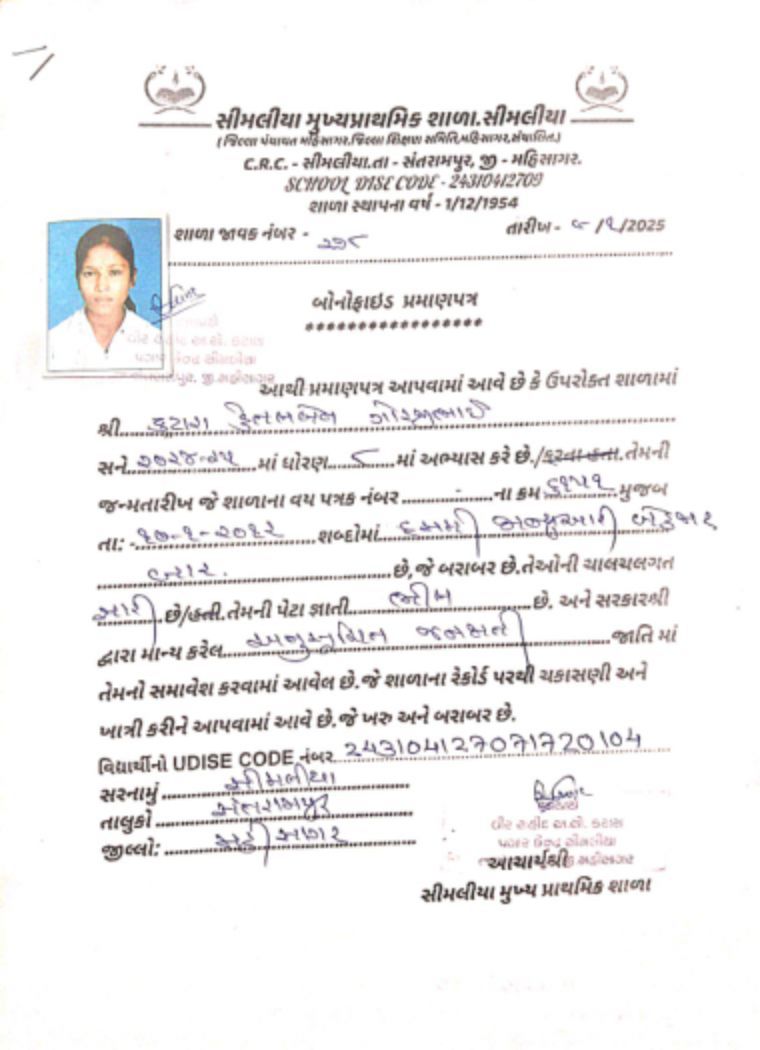 સીમલીયા મુખ્યપ્રાથમિક શાળા.સીમલીયા
(જિલ્લા પંચાયત મહિસાગર.જિલ્લા શિક્ષણ સમિતિ,મહિસાગર,સંચાલિત.)
C.R.C. - સીમલીયા.તા - સંતરામપુર, જી - મહિસાગર.
SCHOOL DISE CODE - 24310412709
શાળા સ્થાપના વર્ષ - 1/12/1954
શાળા જાવક નંબર -
તારીખ - /2025
બોનોફાઇડ પ્રમાણપત્ર
*****************
આથી પ્રમાણપત્ર આપવામાં આવે છે કે ઉપરોક્ત શાળામાં
શ્રી. કટારા
સને ૨૦૨૪-૨૫ માં ધોરણ ૮ માં અભ્યાસ કરે છે./કરતા હતા.તેમની
જન્મતારીખ જે શાળાના વય પત્રક નંબર ના ક્રમ ૬૧૫૧ મુજબ
તા: - ૧૦-૧-૨૦૧૨ શબ્દોમાં દસમી જાન્યુઆરી બે હજાર
બાર. છે, જે બરાબર છે.તેઓની ચાલચલગત
સારી છે/હતી.તેમની પેટા જ્ઞાતી ભીલ છે. અને સરકારશ્રી
દ્વારા માન્ય કરેલ અનુસૂચિત જનજાતી જાતિ માં
તેમનો સમાવેશ કરવામાં આવેલ છે.જે શાળાના રેકોર્ડ પરથી ચકાસણી અને
ખાત્રી કરીને આપવામાં આવે છે.જે ખરુ અને બરાબર છે.
વિદ્યાર્થીનો UDISE CODE નંબર 243104127071720104
સરનામું સીમલીયા
તાલુકો સંતરામપુર
જીલ્લો: મહીસાગર
આચાર્યશ્રી
સીમલીયા મુખ્ય પ્રાથમિક શાળા